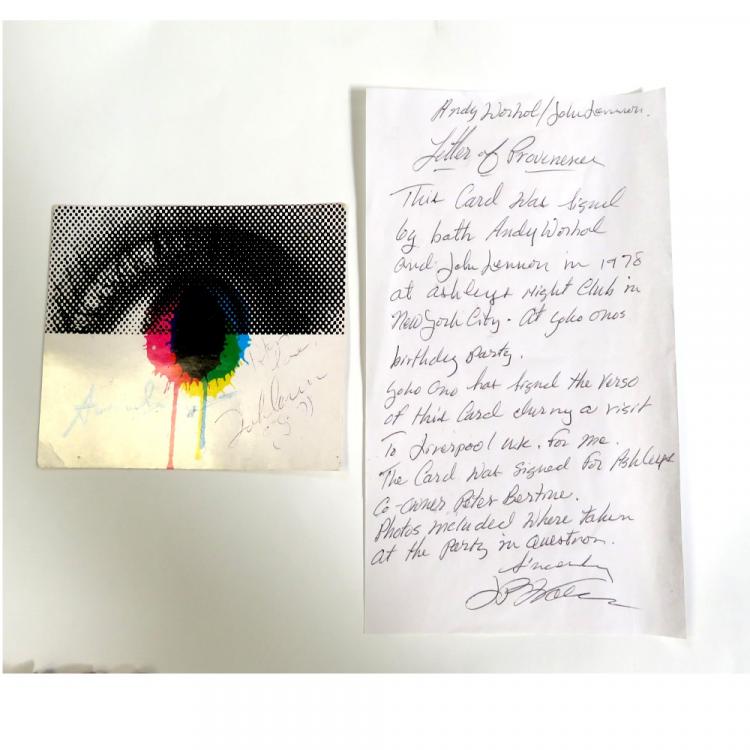 John Lennon
Andy Worhol/John Lennon.
Letter of Provinence
This Card was signed
by both Andy Worhol
and John Lennon in 1978
at Ashleys Night Club in
New York City. At Yoko Onos
birthday party.
Yoko Ono has signed the verso
of this Card during a visit
To Liverpool UK. For me.
The Card was signed for Ashleys
Co-owner Peter Bertine.
Photos included where taken
at the Party in Question.
Sincerely